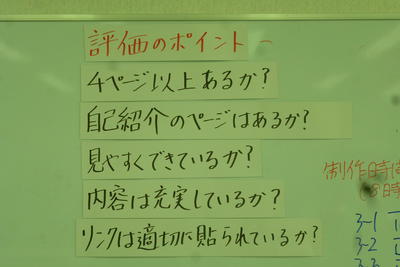 評価のポイント
4ページ以上あるか?
自己紹介のページはあるか?
見やすくできているか?
内容は充実しているか?
リンクは適切に貼られているか?
制作時
8時
3-1
3-2
3-3